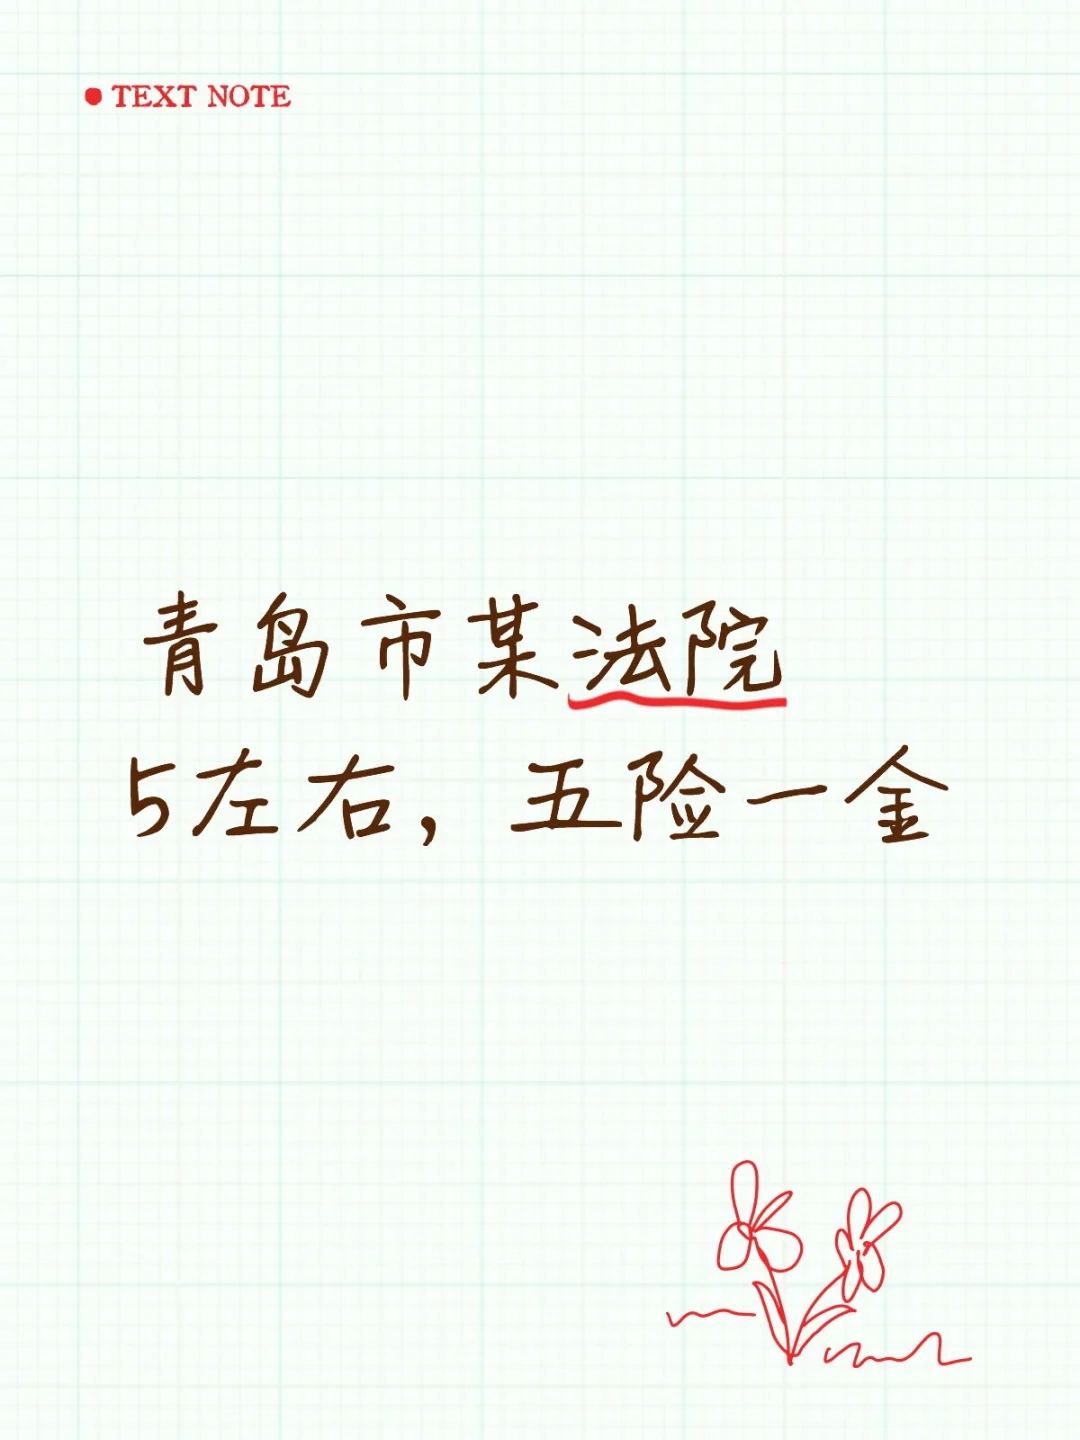 TEXT NOTE
青岛市某法院
5左右，五险一金